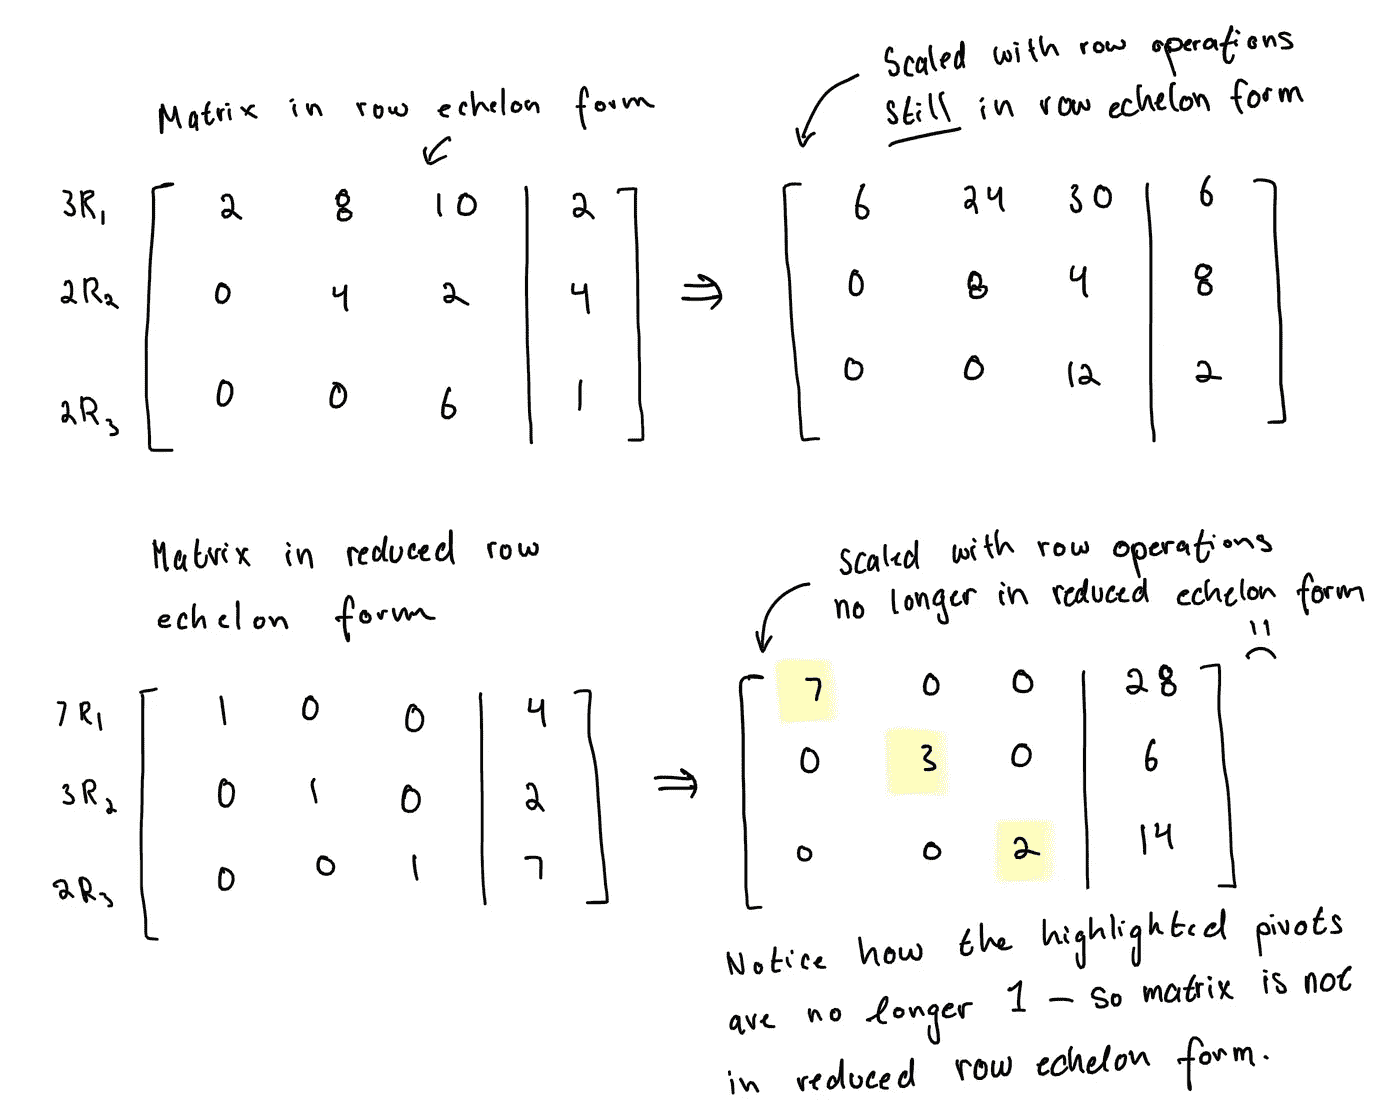 Matrix in row echelon form
Scaled with row operations
still in row echelon form
3R₁ 2 8 10 | 2
2R₂ 0 4 2 | 4
2R₃ 0 0 6 | 1
⇒
6 24 30 | 6
0 8 4 | 8
0 0 12 | 2
Matrix in reduced row
echelon form
Scaled with row operations
no longer in reduced echelon form
7R₁ 1 0 0 | 4
3R₂ 0 1 0 | 2
2R₃ 0 0 1 | 7
⇒
7 0 0 | 28
0 3 0 | 6
0 0 2 | 14
Notice how the highlighted pivots
are no longer 1 – so matrix is not
in reduced row echelon form.